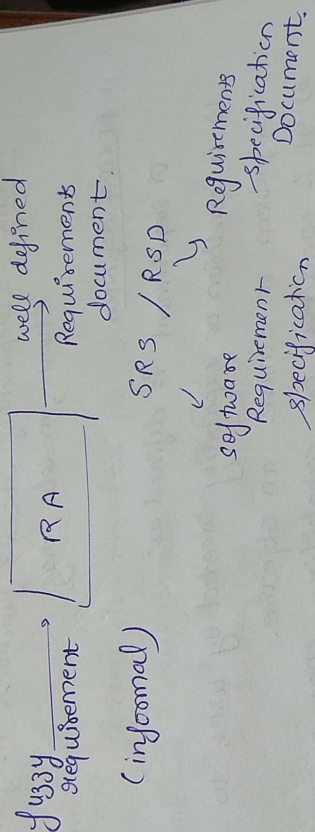 fuzzy
requirement
(informal)
RA
well defined
Requirements
document.
SRS / RSD
Software
Requirement
specification
Requirements
specification
Document.